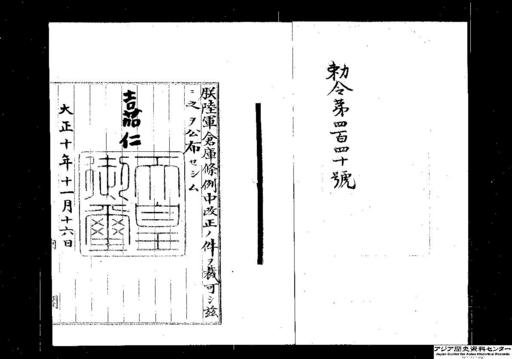 勅令第四百四十號
朕陸軍倉庫條例中改正ノ件ヲ裁可シ茲
ニ之ヲ公布セシム
嘉仁
天皇御璽
大正十年十一月十六日
アジア歴史資料センター
Japan Center for Asian Historical Records